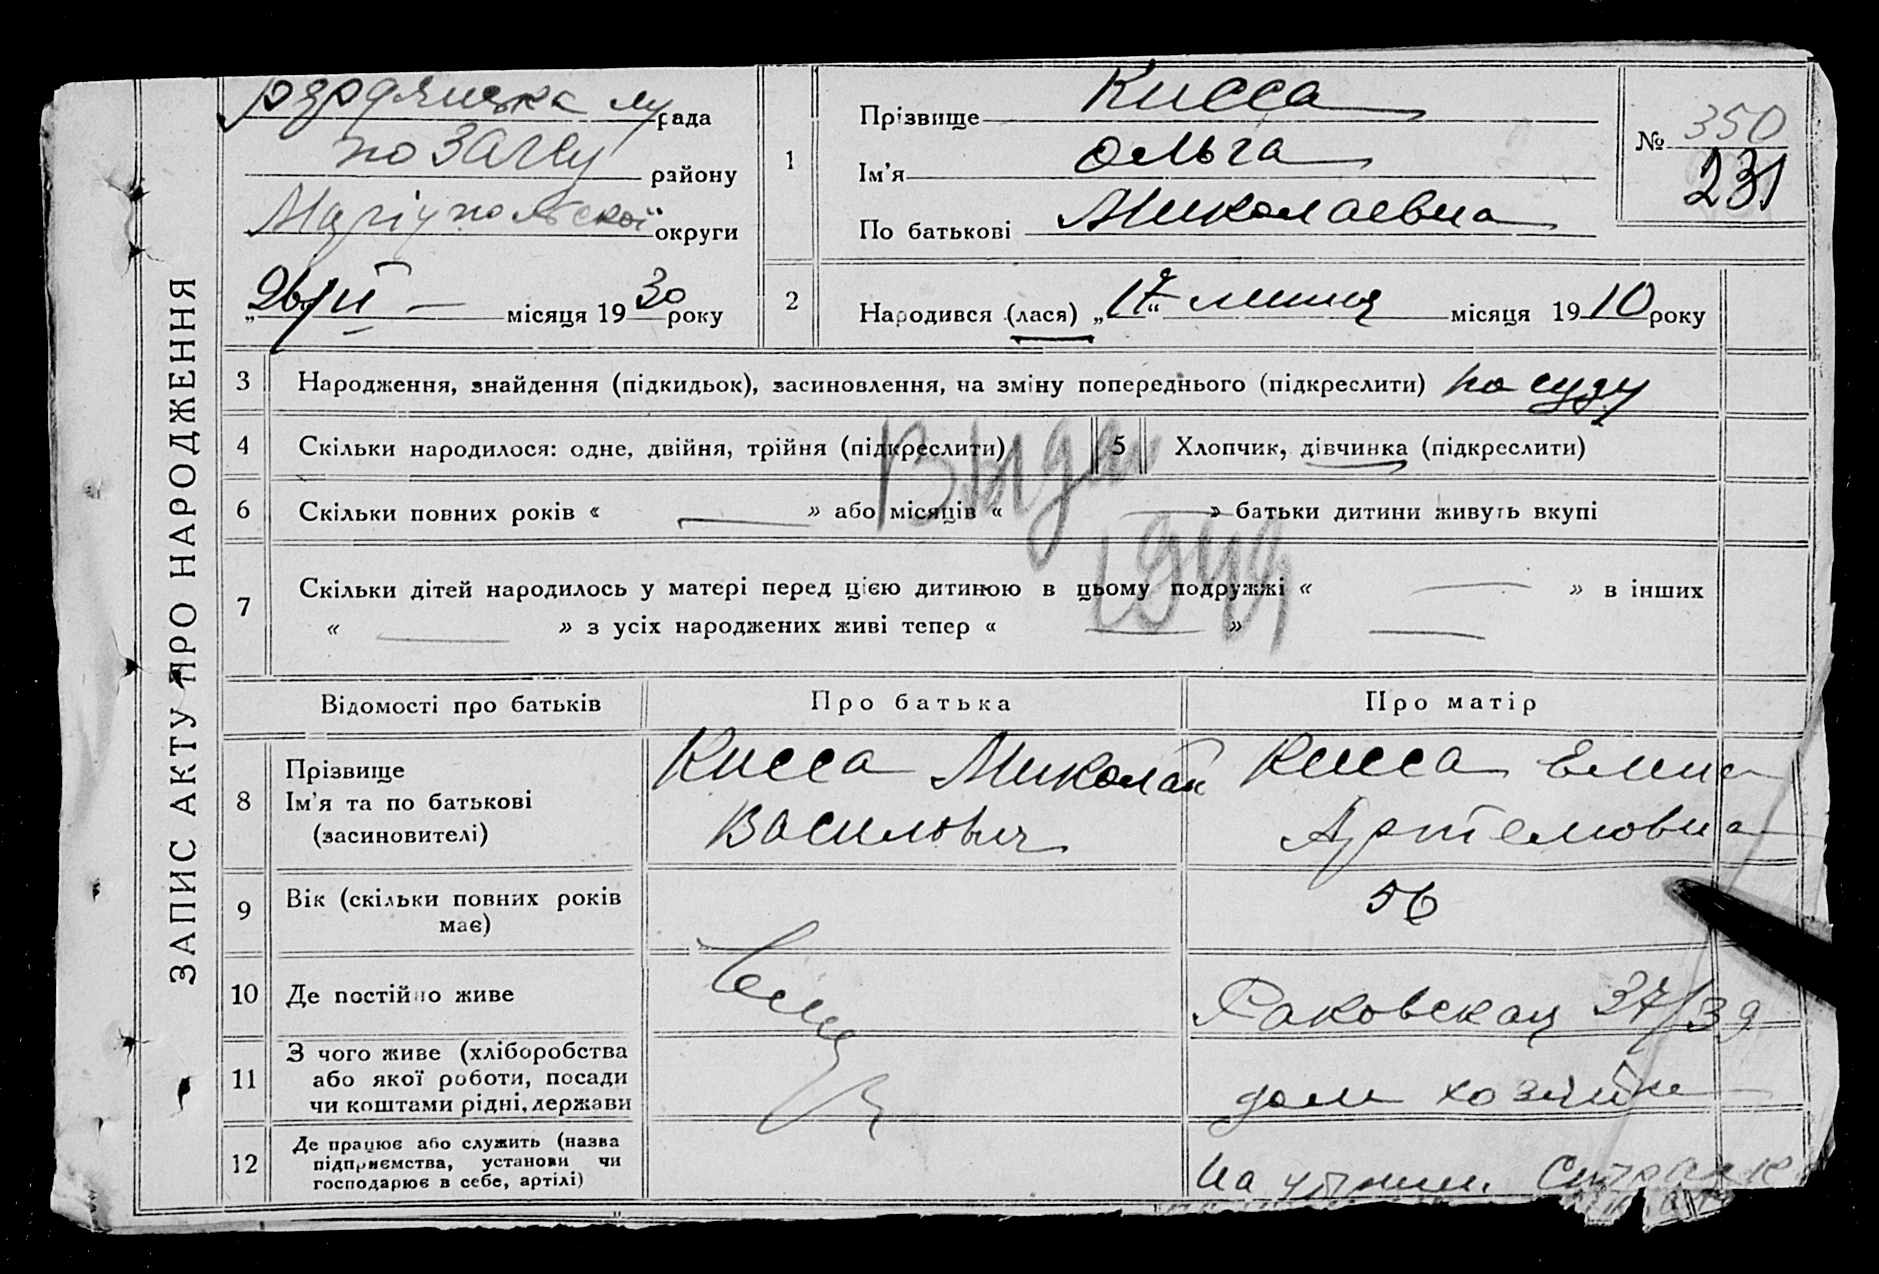 ЗАПИС АКТУ ПРО НАРОДЖЕННЯ
рада
по ЗАГСу району
Маріупольскої округи
„26/II — місяця 1930 року
1
Прізвище Кисса
Ім'я Ольга
По батькові Миколаевна
№ 350
231
2
Народився (лася) „17“ липця місяця 1910 року
3 Народження, знайдення (підкидьок), засиновлення, на зміну попереднього (підкреслити) по суду
4 Скільки народилося: одне, двійня, трійня (підкреслити) 5 Хлопчик, дівчинка (підкреслити)
6 Скільки повних років « — » або місяців « — » батьки дитини живуть вкупі
7 Скільки дітей народилось у матері перед цією дитиною в цьому подружжі « — » в інших
« — » з усіх народжених живі тепер « — » —
Відомості про батьків Про батька Про матір
8 Прізвище
Ім'я та по батькові
(засиновителі)
Кисса Миколай
Василович
Кисса Елена
Артемовна
9 Вік (скільки повних років має)
56
10 Де постійно живе
Раковская 37/39
11 З чого живе (хліборобства
або якої роботи, посади
чи коштами рідні, держави
дом хозяйка
12 Де працює або служить (назва
підприємства, установи чи
господарює в себе, артілі)
На